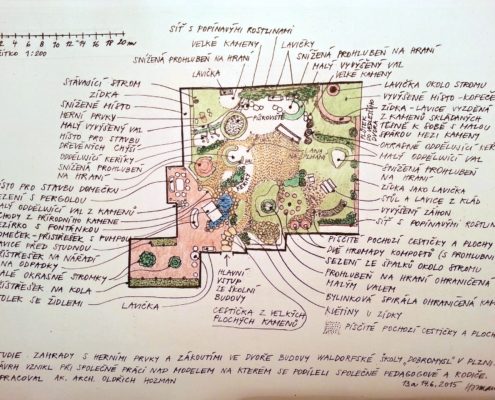 2 4 6 8 10 12 14 16 18 20m
ŘÍTKO 1:200
SÍŤ S POPÍNAVÝMI ROSTLINAMI
VELKÉ KAMENY
LAVIČKY
SNÍŽENÁ PROHLUBEŇ NA HRANÍ
SNÍŽENÁ PROHLUBEŇ NA HRANÍ
MALÝ VYVÝŠENÝ VAL
LAVIČKA
VELKÉ KAMENY
STÁVAJÍCÍ STROM
ZÍDKA
SNÍŽENÉ MÍSTO
HERNÍ PRVKY
MALÝ VYVÝŠENÝ VAL
MÍSTO PRO STAVBU
DŘEVĚNÝCH CHÝŠÍ
ODDĚLUJÍCÍ KEŘÍKY
SNÍŽENÁ PROHLUBEŇ
NA HRANÍ
MÍSTO PRO STAVBU DOMEČKU
SEZENÍ S PERGOLOU
MALÝ ODDĚLUJÍCÍ VAL Z KAMENŮ
CHODY Z PŘÍRODNÍHO KAMENE
JEZÍRKO S FONTÁNKOU
DOMEČEK-PŘÍSTŘEŠEK S PUMPOU
LAVICE PŘED STUDNOU
PŘÍSTŘEŠEK NA NÁŘADÍ
NA ODPADKY
MALÉ OKRASNÉ STROMKY
PŘÍSTŘEŠEK NA KOLA
STOLEK SE ŽIDLEMI
LAVIČKA
PÍSKOVIŠTĚ
LANA
HLAVNÍ
VSTUP
ZE ŠKOLNÍ
BUDOVY
CESTIČKA Z VELKÝCH
PLOCHÝCH KAMENŮ
LAVIČKA OKOLO STROMU
VYVÝŠENÉ MÍSTO-KOPEČEK
ZÍDKA-LAVICE VYZDĚNÁ
Z KAMENŮ SKLÁDANÝCH
TĚSNĚ K SOBĚ S MALOU
SPÁROU MEZI KAMENY
OKRASNÉ ODDĚLUJÍCÍ KEŘÍ
MALÝ ODDĚLUJÍCÍ VAL
SNÍŽENÁ PROHLUBEŇ
NA HRANÍ
ZÍDKA JAKO LAVIČKA
STŮL A LAVICE Z KLÁD
VYVÝŠENÝ ZÁHON
SÍŤ S POPÍNAVÝMI ROSTLINA
PÍSČITÉ POCHOZÍ CESTIČKY A PLOCHY
DVĚ HROMADY KOMPOSTŮ (S PROHLUBNÍ
SEZENÍ ZE ŠPALKŮ OKOLO STROMU
PROHLUBEŇ NA HRANÍ OHRANIČENÁ
MALÝM VALEM
BYLINKOVÁ SPIRÁLA OHRANIČENÁ KAME
KVĚTINY U ZÍDKY
PÍSČITÉ POCHOZÍ CESTIČKY A PLOCH
STUDIE ZAHRADY S HERNÍMI PRVKY A ZÁKOUTÍMI VE DVOŘE BUDOVY WALDORFSKÉ ŠKOLY „DOBROMYSL" V PLZNI.
NÁVRH VZNIKL PŘI SPOLEČNÉ PRÁCI NAD MODELEM NA KTERÉM SE PODÍLELI SPOLEČNĚ PEDAGOGOVÉ A RODIČE.
VYPRACOVAL AK. ARCH. OLDŘICH HOZMAN
13 a 14.6. 2015